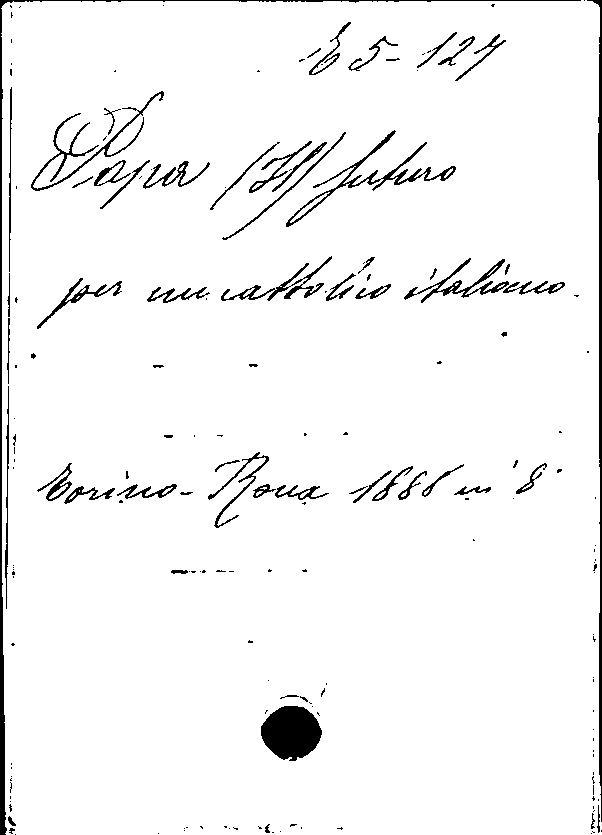 E 5-127
Papa (Il) futuro
per un cattolico italiano.
Torino - Roux 1888 in 8°